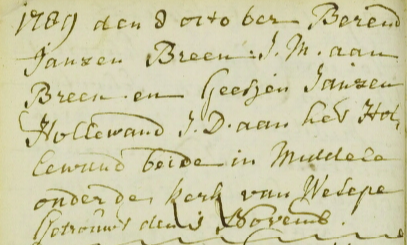 1789 den 8 october Berend
Janzen Breen J. M. aan
Breen en Geesjen Janzen
Hollewand J. D. aan het Hol,
lewand beide in Middele
onder de kerk van Wesepe
Getrouwt den 1 Novemb.